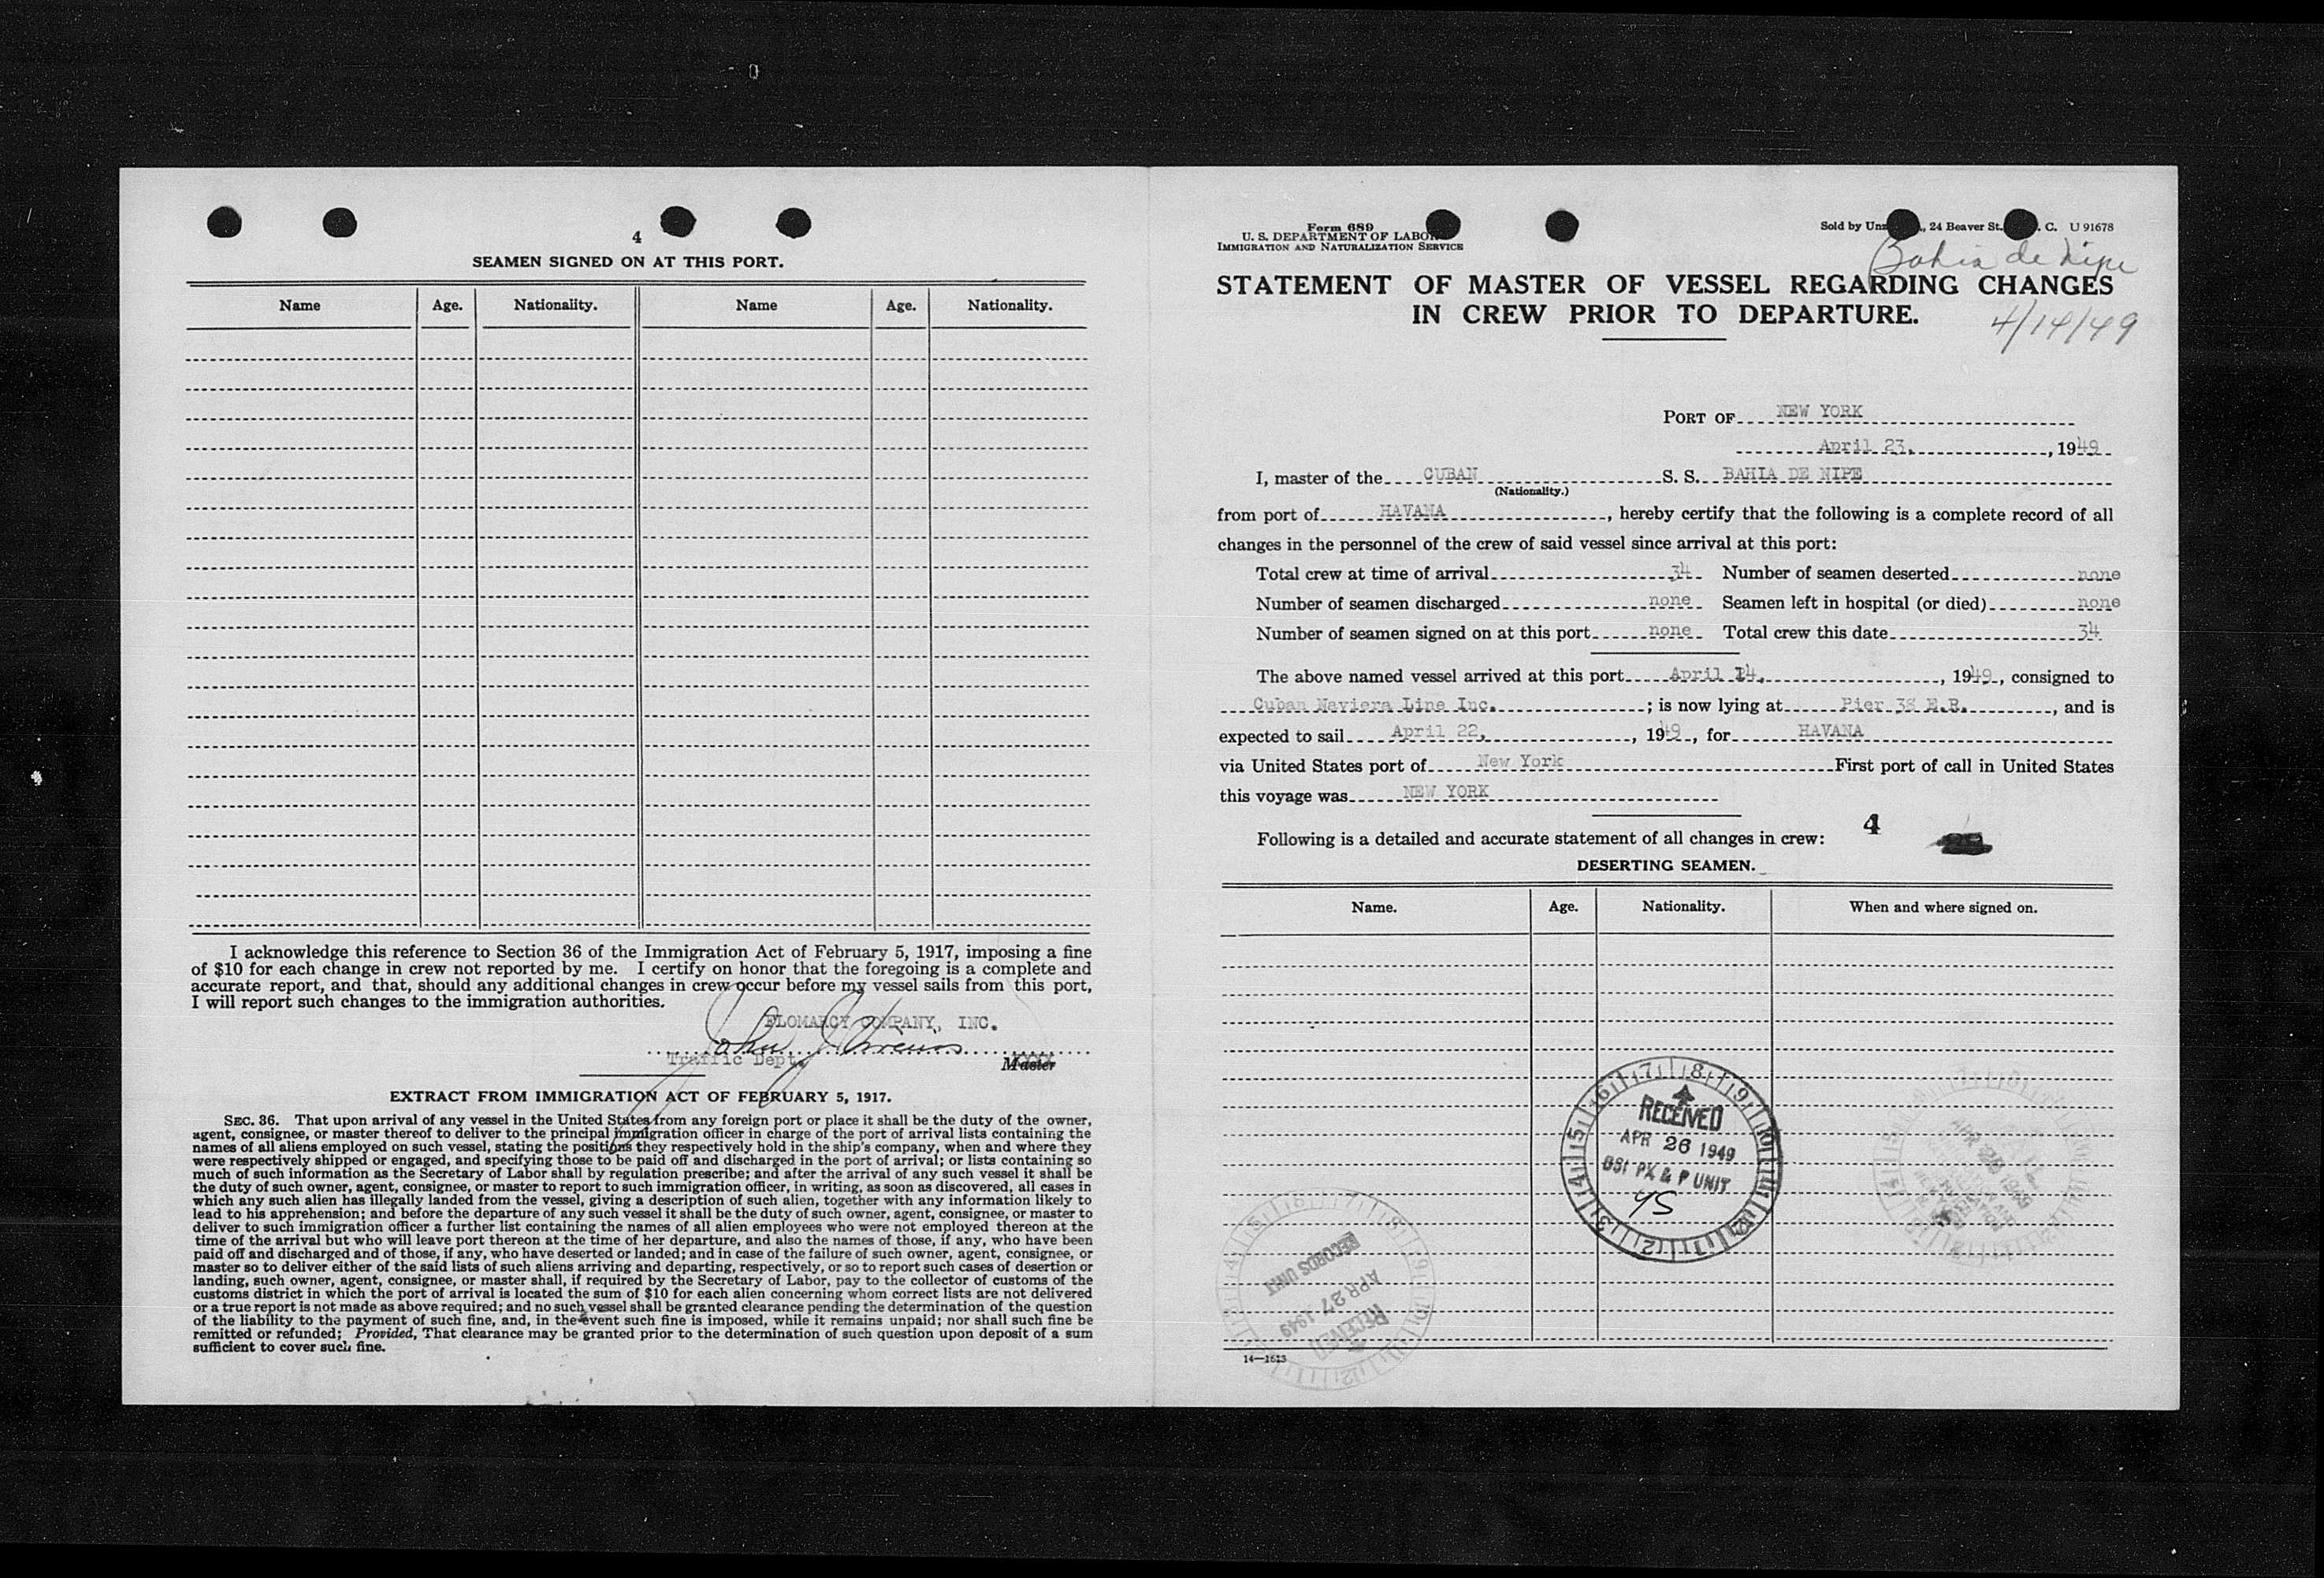 4
SEAMEN SIGNED ON AT THIS PORT.
Name Age. Nationality. Name Age. Nationality.
I acknowledge this reference to Section 36 of the Immigration Act of February 5, 1917, imposing a fine
of $10 for each change in crew not reported by me. I certify on honor that the foregoing is a complete and
accurate report, and that, should any additional changes in crew occur before my vessel sails from this port,
I will report such changes to the immigration authorities.
FLOMARCY COMPANY, INC.
John J.
Traffic Dept. Master
EXTRACT FROM IMMIGRATION ACT OF FEBRUARY 5, 1917.
SEC. 36. That upon arrival of any vessel in the United States from any foreign port or place it shall be the duty of the owner,
agent, consignee, or master thereof to deliver to the principal immigration officer in charge of the port of arrival lists containing the
names of all aliens employed on such vessel, stating the positions they respectively hold in the ship's company, when and where they
were respectively shipped or engaged, and specifying those to be paid off and discharged in the port of arrival; or lists containing so
much of such information as the Secretary of Labor shall by regulation prescribe; and after the arrival of any such vessel it shall be
the duty of such owner, agent, consignee, or master to report to such immigration officer, in writing, as soon as discovered, all cases in
which any such alien has illegally landed from the vessel, giving a description of such alien, together with any information likely to
lead to his apprehension; and before the departure of any such vessel it shall be the duty of such owner, agent, consignee, or master to
deliver to such immigration officer a further list containing the names of all alien employees who were not employed thereon at the
time of the arrival but who will leave port thereon at the time of her departure, and also the names of those, if any, who have been
paid off and discharged and of those, if any, who have deserted or landed; and in case of the failure of such owner, agent, consignee, or
master so to deliver either of the said lists of such aliens arriving and departing, respectively, or so to report such cases of desertion or
landing, such owner, agent, consignee, or master shall, if required by the Secretary of Labor, pay to the collector of customs of the
customs district in which the port of arrival is located the sum of $10 for each alien concerning whom correct lists are not delivered
or a true report is not made as above required; and no such vessel shall be granted clearance pending the determination of the question
of the liability to the payment of such fine, and, in the event such fine is imposed, while it remains unpaid; nor shall such fine be
remitted or refunded; Provided, That clearance may be granted prior to the determination of such question upon deposit of a sum
sufficient to cover such fine.
Form 689
U. S. DEPARTMENT OF LABOR
IMMIGRATION AND NATURALIZATION SERVICE
Sold by 24 Beaver St. C. U 91678
Bahia de Nipe
STATEMENT OF MASTER OF VESSEL REGARDING CHANGES
IN CREW PRIOR TO DEPARTURE.
4/14/49
PORT OF NEW YORK
April 23, 1949
I, master of the CUBAN S. S. BAHIA DE NIPE
(Nationality.)
from port of HAVANA, hereby certify that the following is a complete record of all
changes in the personnel of the crew of said vessel since arrival at this port:
Total crew at time of arrival 34 Number of seamen deserted none
Number of seamen discharged none Seamen left in hospital (or died) none
Number of seamen signed on at this port none Total crew this date 34
The above named vessel arrived at this port April 14, 1949, consigned to
Cuban Naviera Line Inc. ; is now lying at Pier 38 E.R. , and is
expected to sail April 22, 1949, for HAVANA
via United States port of New York First port of call in United States
this voyage was NEW YORK
4
Following is a detailed and accurate statement of all changes in crew:
DESERTING SEAMEN.
Name. Age. Nationality. When and where signed on.
RECEIVED
APR 26 1949
BSI PX & P UNIT
YS
RECORDS UNIT
APR 27 1949
RECEIVED
14—1613